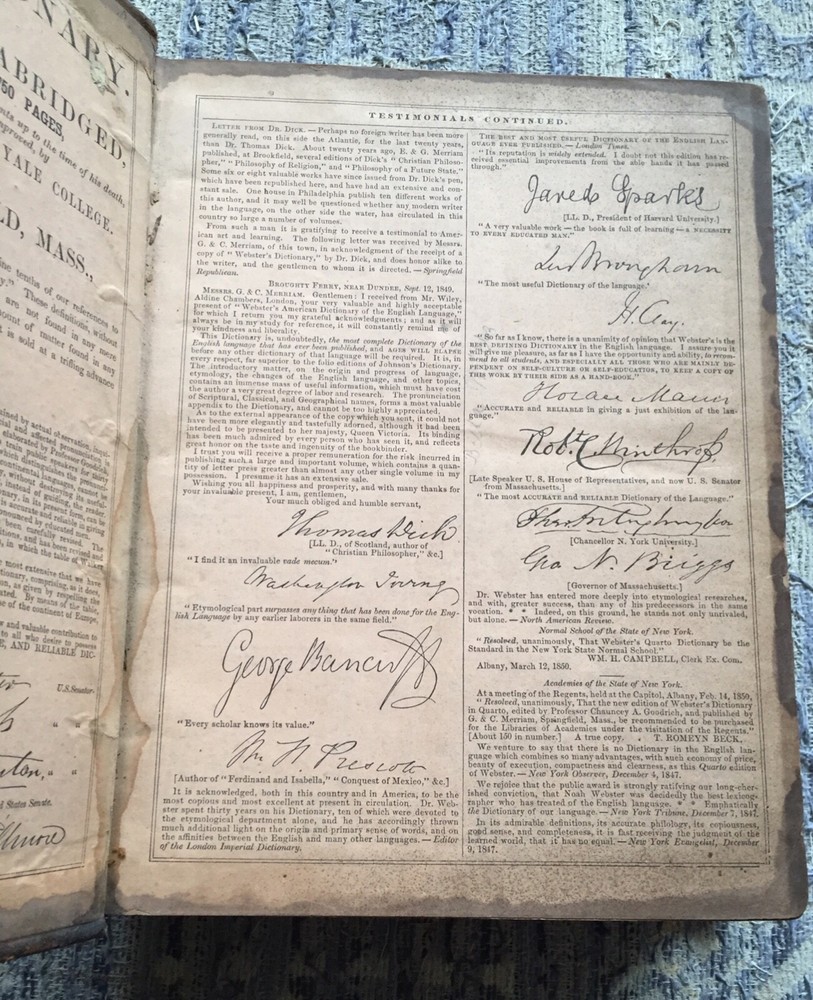 ONARY.
ABRIDGED,
750 PAGES,
nts up to the time of his death,
improved, by
YALE COLLEGE.
LD, MASS.,
ine tenths of our references to
y." These definitions, without
are not found in any mean
ount of matter found in any
it is sold at a trifling advance
U.S. Senator
TESTIMONIALS CONTINUED.
LETTER FROM DR. DICK. — Perhaps no foreign writer has been more
generally read, on this side the Atlantic, for the last twenty years,
than Dr. Thomas Dick. About twenty years ago, E. & G. Merriam
published, at Brookfield, several editions of Dick's "Christian Philoso-
pher," "Philosophy of Religion," and "Philosophy of a Future State."
Some six or eight valuable works have since issued from Dr. Dick's pen,
which have been republished here, and have had an extensive and con-
stant sale. One house in Philadelphia publish ten different works of
this author, and it may well be questioned whether any modern writer
in the language, on the other side the water, has circulated in this
country so large a number of volumes.
From such a man it is gratifying to receive a testimonial to Amer-
ican art and learning. The following letter was received by Messrs.
G. & C. Merriam, of this town, in acknowledgment of the receipt of a
copy of "Webster's Dictionary," by Dr. Dick, and does honor alike to
the writer, and the gentlemen to whom it is directed. — Springfield
Republican.
BROUGHTY FERRY, NEAR DUNDEE, Sept. 12, 1849.
MESSRS. G. & C. MERRIAM. Gentlemen: I received from Mr. Wiley,
Aldine Chambers, London, your very valuable and highly acceptable
present of "Webster's American Dictionary of the English Language,"
for which I return you my grateful acknowledgments; and as it will
always be in my study for reference, it will constantly remind me of
your kindness and liberality.
This Dictionary is, undoubtedly, the most complete Dictionary of the
English language that has ever been published, and AGES WILL ELAPSE
before any other dictionary of that language will be required. It is, in
every respect, far superior to the folio editions of Johnson's Dictionary.
The introductory matter, on the origin and progress of language,
etymology, the changes of the English language, and other topics,
contains an immense mass of useful information, which must have cost
the author a very great degree of labor and research. The pronunciation
of Scriptural, Classical, and Geographical names, forms a most valuable
appendix to the Dictionary, and cannot be too highly appreciated.
As to the external appearance of the copy which you sent, it could not
have been more elegantly and tastefully adorned, although it had been
intended to be presented to her majesty, Queen Victoria. Its binding
has been much admired by every person who has seen it, and reflects
great honor on the taste and ingenuity of the bookbinder.
I trust you will receive a proper remuneration for the risk incurred in
publishing such a large and important volume, which contains a quan-
tity of letter press greater than almost any other single volume in my
possession. I presume it has an extensive sale.
Wishing you all happiness and prosperity, and with many thanks for
your invaluable present, I am, gentlemen,
Your much obliged and humble servant,
Thomas Dick
[LL. D., of Scotland, author of
"Christian Philosopher," &c.]
"I find it an invaluable vade mecum."
Washington Irving
"Etymological part surpasses any thing that has been done for the Eng-
lish Language by any earlier laborers in the same field."
George Bancroft
"Every scholar knows its value."
Wm H. Prescott
[Author of "Ferdinand and Isabella," "Conquest of Mexico," &c.]
It is acknowledged, both in this country and in America, to be the
most copious and most excellent at present in circulation. Dr. Web-
ster spent thirty years on his Dictionary, ten of which were devoted to
the etymological department alone, and he has accordingly thrown
much additional light on the origin and primary sense of words, and on
the affinities between the English and many other languages. — Editor
of the London Imperial Dictionary.
THE BEST AND MOST USEFUL DICTIONARY OF THE ENGLISH LAN-
GUAGE EVER PUBLISHED. — London Times.
"Its reputation is widely extended. I doubt not this edition has re-
ceived essential improvements from the able hands it has passed
through."
Jared Sparks
[LL. D., President of Harvard University.]
"A very valuable work — the book is full of learning — a NECESSITY
TO EVERY EDUCATED MAN."
Brougham
"The most useful Dictionary of the language."
H. Clay.
"So far as I know, there is a unanimity of opinion that Webster's is the
BEST DEFINING DICTIONARY in the English language. I assure you it
will give me pleasure, as far as I have the opportunity and ability, to recom-
mend to all students, AND ESPECIALLY ALL THOSE WHO ARE MAINLY DE-
PENDENT ON SELF-CULTURE OR SELF-EDUCATION, TO KEEP A COPY OF
THIS WORK BY THEIR SIDE AS A HAND-BOOK."
Horace Mann
"ACCURATE and RELIABLE in giving a just exhibition of the lan-
guage."
Robt. C. Winthrop
[Late Speaker U. S. House of Representatives, and now U. S. Senator
from Massachusetts.]
"The most ACCURATE and RELIABLE Dictionary of the Language."
Frelinghuysen
[Chancellor N. York University.]
Geo N. Briggs
[Governor of Massachusetts.]
Dr. Webster has entered more deeply into etymological researches,
and with, greater success, than any of his predecessors in the same
vocation. * * Indeed, on this ground, he stands not only unrivaled,
but alone. — North American Review.
Normal School of the State of New York.
"Resolved, unanimously, That Webster's Quarto Dictionary be the
Standard in the New York State Normal School."
WM. H. CAMPBELL, Clerk Ex. Com.
Albany, March 12, 1850.
Academies of the State of New York.
At a meeting of the Regents, held at the Capitol, Albany, Feb. 14, 1850,
"Resolved, unanimously, That the new edition of Webster's Dictionary
in Quarto, edited by Professor Chauncey A. Goodrich, and published by
G. & C. Merriam, Springfield, Mass., be recommended to be purchased
for the Libraries of Academies under the visitation of the Regents."
[About 150 in number.] A true copy. T. ROMEYN BECK.
We venture to say that there is no Dictionary in the English lan-
guage which combines so many advantages, with such economy of price,
beauty of execution, compactness and clearness, as this Quarto edition
of Webster. — New York Observer, December 4, 1847.
We rejoice that the public award is strongly ratifying our long-cher-
ished conviction, that Noah Webster was decidedly the best lexicog-
rapher who has treated of the English language. * * Emphatically
the Dictionary of our language. — New York Tribune, December 7, 1847.
In its admirable definitions, its accurate philology, its copiousness,
good sense, and completeness, it is fast receiving the judgment of the
learned world, that it has no equal. — New York Evangelist, December
9, 1847.